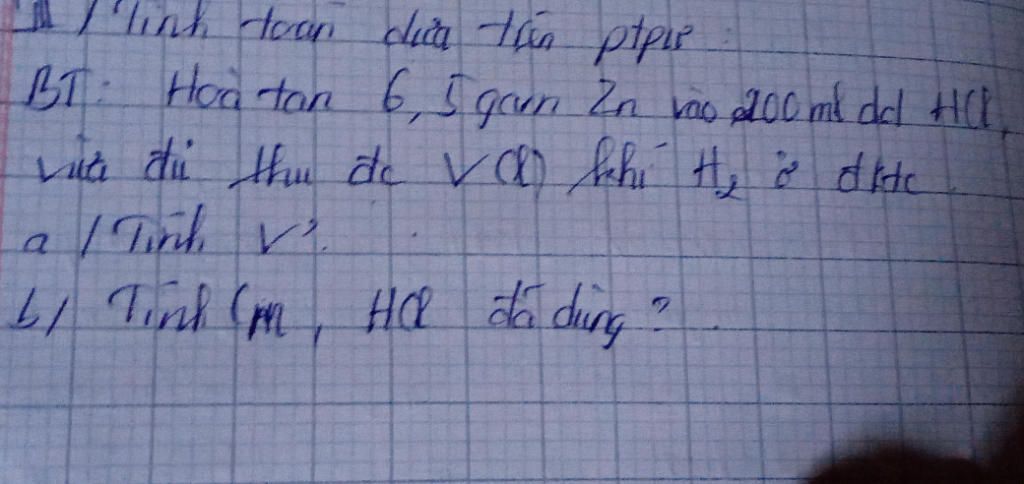 II / Tính toán dựa trên ptpư:
BT: Hoà tan 6,5 gam Zn vào 200 ml dd HCl,
vừa đủ thu đc V (l) khí H₂ ở đktc.
a / Tính V?.
b / Tính Cm, HCl đã dùng?